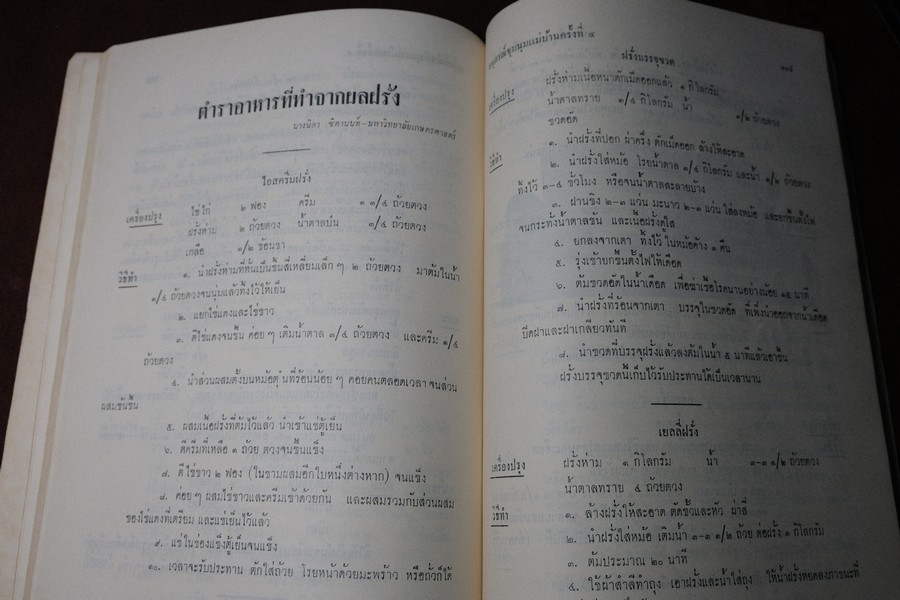 ตำราอาหารที่ทำจากผลฝรั่ง
นางนิดา ชิตานนท์-มหาวิทยาลัยเกษตรศาสตร์
ไอสครีมฝรั่ง
เครื่องปรุง ไข่ไก่ ๒ ฟอง ครีม ๑ ๑/๔ ถ้วยตวง
ฝรั่งห่าม ๒ ถ้วยตวง น้ำตาลป่น ๓/๔ ถ้วยตวง
เกลือ ๑/๒ ช้อนชา
วิธีทำ ๑. นำฝรั่งห่ามที่หั่นเป็นชิ้นสี่เหลี่ยมเล็กๆ ๒ ถ้วยตวง มาต้มในน้ำ
๑/๔ ถ้วยตวงจนนุ่มแล้วทิ้งไว้ให้เย็น
๒. แยกไข่แดงและไข่ขาว
๓. ตีไข่แดงจนข้น ค่อยๆ เติมน้ำตาล ๓/๔ ถ้วยตวง และครีม ๑/๔
ถ้วยตวง
๔. นำส่วนผสมตั้งบนหม้อตุ๋นที่ร้อนน้อยๆ คอยคนตลอดเวลา จนส่วน
ผสมข้นขึ้น
๕. ผสมเนื้อฝรั่งที่ต้มไว้แล้ว นำเข้าแช่ตู้เย็น
๖. ตีครีมที่เหลือ ๑ ถ้วย ตวงจนขึ้นแข็ง
๗. ตีไข่ขาว ๒ ฟอง (ในชามผสมอีกใบหนึ่งต่างหาก) จนแข็ง
๘. ค่อยๆ ผสมไข่ขาวและครีมเข้าด้วยกัน และผสมรวมกับส่วนผสม
ของไข่แดงที่เตรียม และแช่เย็นไว้แล้ว
๙. แช่ในช่องแข็งตู้เย็นจนแข็ง
๑๐. เวลาจะรับประทาน ตักใส่ถ้วย โรยหน้าด้วยมะพร้าว หรือถั่วก็ได้
ชุมนุมแม่บ้านครั้งที่ ๔
ฝรั่งบรรจุขวด
เครื่องปรุง ฝรั่งห่ามเนื้อหนาตักเม็ดออกแล้ว ๑ กิโลกรัม
น้ำตาลทราย ๑/๔ กิโลกรัม น้ำ ๑/๒ ถ้วยตวง
ขวดอัด
วิธีทำ ๑. นำฝรั่งที่ปอก ผ่าครึ่ง ตักเม็ดออก ล้างให้สะอาด
๒. นำฝรั่งใส่หม้อ โรยน้ำตาล ๑/๔ กิโลกรัม และน้ำ ๑/๒ ถ้วยตวง
ทิ้งไว้ ๓-๔ ชั่วโมง หรือจนน้ำตาลละลายบ้าง
๓. ฝานขิง ๒-๓ แว่น มะนาว ๒-๓ แว่น ใส่ลงหม้อ และยกขึ้นตั้งไฟ
จนกระทั่งน้ำตาลข้น และเนื้อฝรั่งดูใส
๔. ยกลงจากเตา ทิ้งไว้ ในหม้อค้าง ๑ คืน
๕. รุ่งเช้ายกขึ้นตั้งไฟให้เดือด
๖. ต้มขวดอัดในน้ำเดือด เพื่อฆ่าเชื้อโรคนานอย่างน้อย ๑๕ นาที
๗. นำฝรั่งที่ร้อนจากเตา บรรจุในขวดอัด ที่เพิ่งนำออกจากน้ำเดือด
ปิดฝาและฝาเกลียวทันที
๘. นำขวดที่บรรจุฝรั่งแล้วลงต้มในน้ำ ๕ นาทีแล้วเอาขึ้น
ฝรั่งบรรจุขวดนี้เก็บไว้รับประทานได้เป็นเวลานาน
เยลลี่ฝรั่ง
เครื่องปรุง ฝรั่งห่าม ๑ กิโลกรัม น้ำ ๓-๓ ๑/๒ ถ้วยตวง
น้ำตาลทราย ๔ ถ้วยตวง
วิธีทำ ๑. ล้างฝรั่งให้สะอาด ตัดขั้วและหัว ผ่าสี่
๒. นำฝรั่งใส่หม้อ เติมน้ำ ๓-๓ ๑/๒ ถ้วยตวง ต่อฝรั่ง ๑ กิโลกรัม
๓. ต้มประมาณ ๒๐ นาที
๔. ใช้ผ้าสำลีทำถุง เอาฝรั่งและน้ำใส่ถุง ให้น้ำฝรั่งหยดลงภาชนะที่